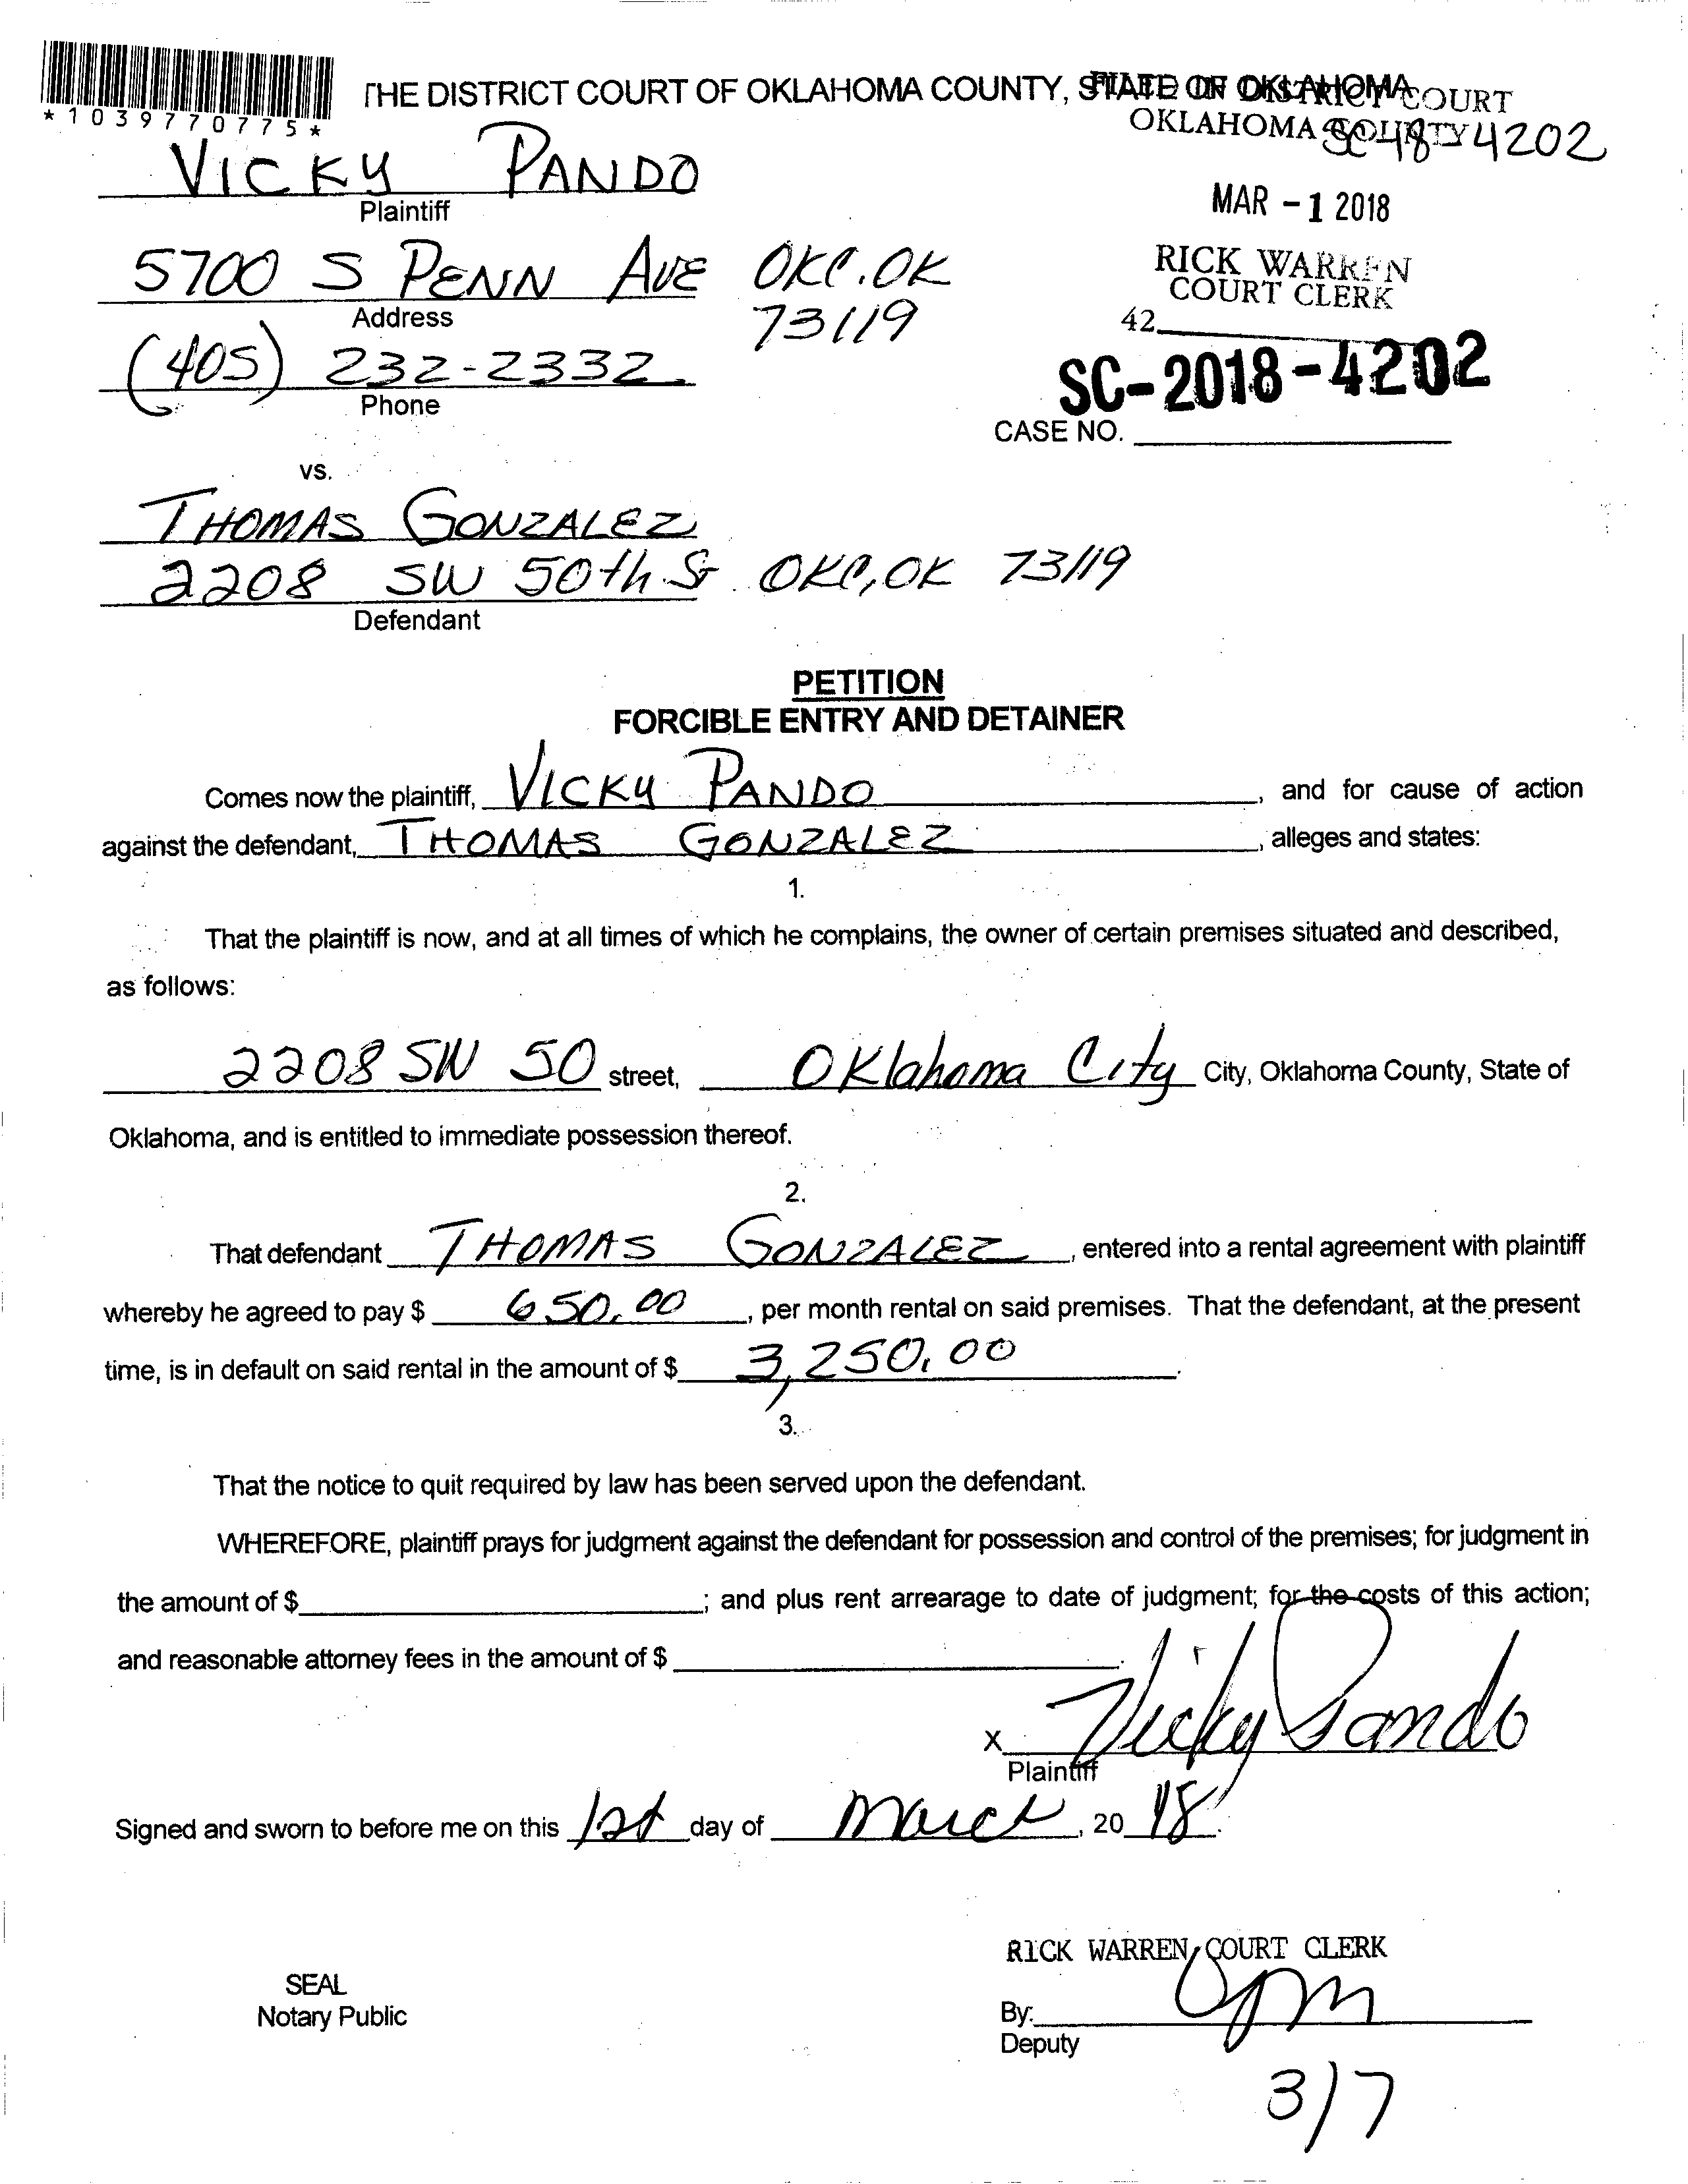 THE DISTRICT COURT OF OKLAHOMA COUNTY, STATE OF OKLAHOMA
FILED IN DISTRICT COURT
OKLAHOMA COUNTY
SC-18-4202
*1039770775*
VICKY PANDO
Plaintiff
MAR -1 2018
5700 S PENN AVE OKC.OK
73119
Address
RICK WARREN
COURT CLERK
42
(405) 232-2332
Phone
SC-2018-4202
CASE NO.
vs.
THOMAS GONZALEZ
2208 SW 50th St OKC, OK 73119
Defendant
PETITION
FORCIBLE ENTRY AND DETAINER
Comes now the plaintiff, VICKY PANDO, and for cause of action
against the defendant, THOMAS GONZALEZ, alleges and states:
1.
That the plaintiff is now, and at all times of which he complains, the owner of certain premises situated and described,
as follows:
2208 SW 50 street, Oklahoma City City, Oklahoma County, State of
Oklahoma, and is entitled to immediate possession thereof.
2.
That defendant THOMAS GONZALEZ, entered into a rental agreement with plaintiff
whereby he agreed to pay $ 650.00, per month rental on said premises. That the defendant, at the present
time, is in default on said rental in the amount of $ 3,250.00.
3.
That the notice to quit required by law has been served upon the defendant.
WHEREFORE, plaintiff prays for judgment against the defendant for possession and control of the premises; for judgment in
the amount of $ ; and plus rent arrearage to date of judgment; for the costs of this action;
and reasonable attorney fees in the amount of $ .
X Vicky Pando
Plaintiff
Signed and sworn to before me on this 1st day of March, 20 18.
RICK WARREN, COURT CLERK
SEAL
Notary Public
By:
Deputy
3/7